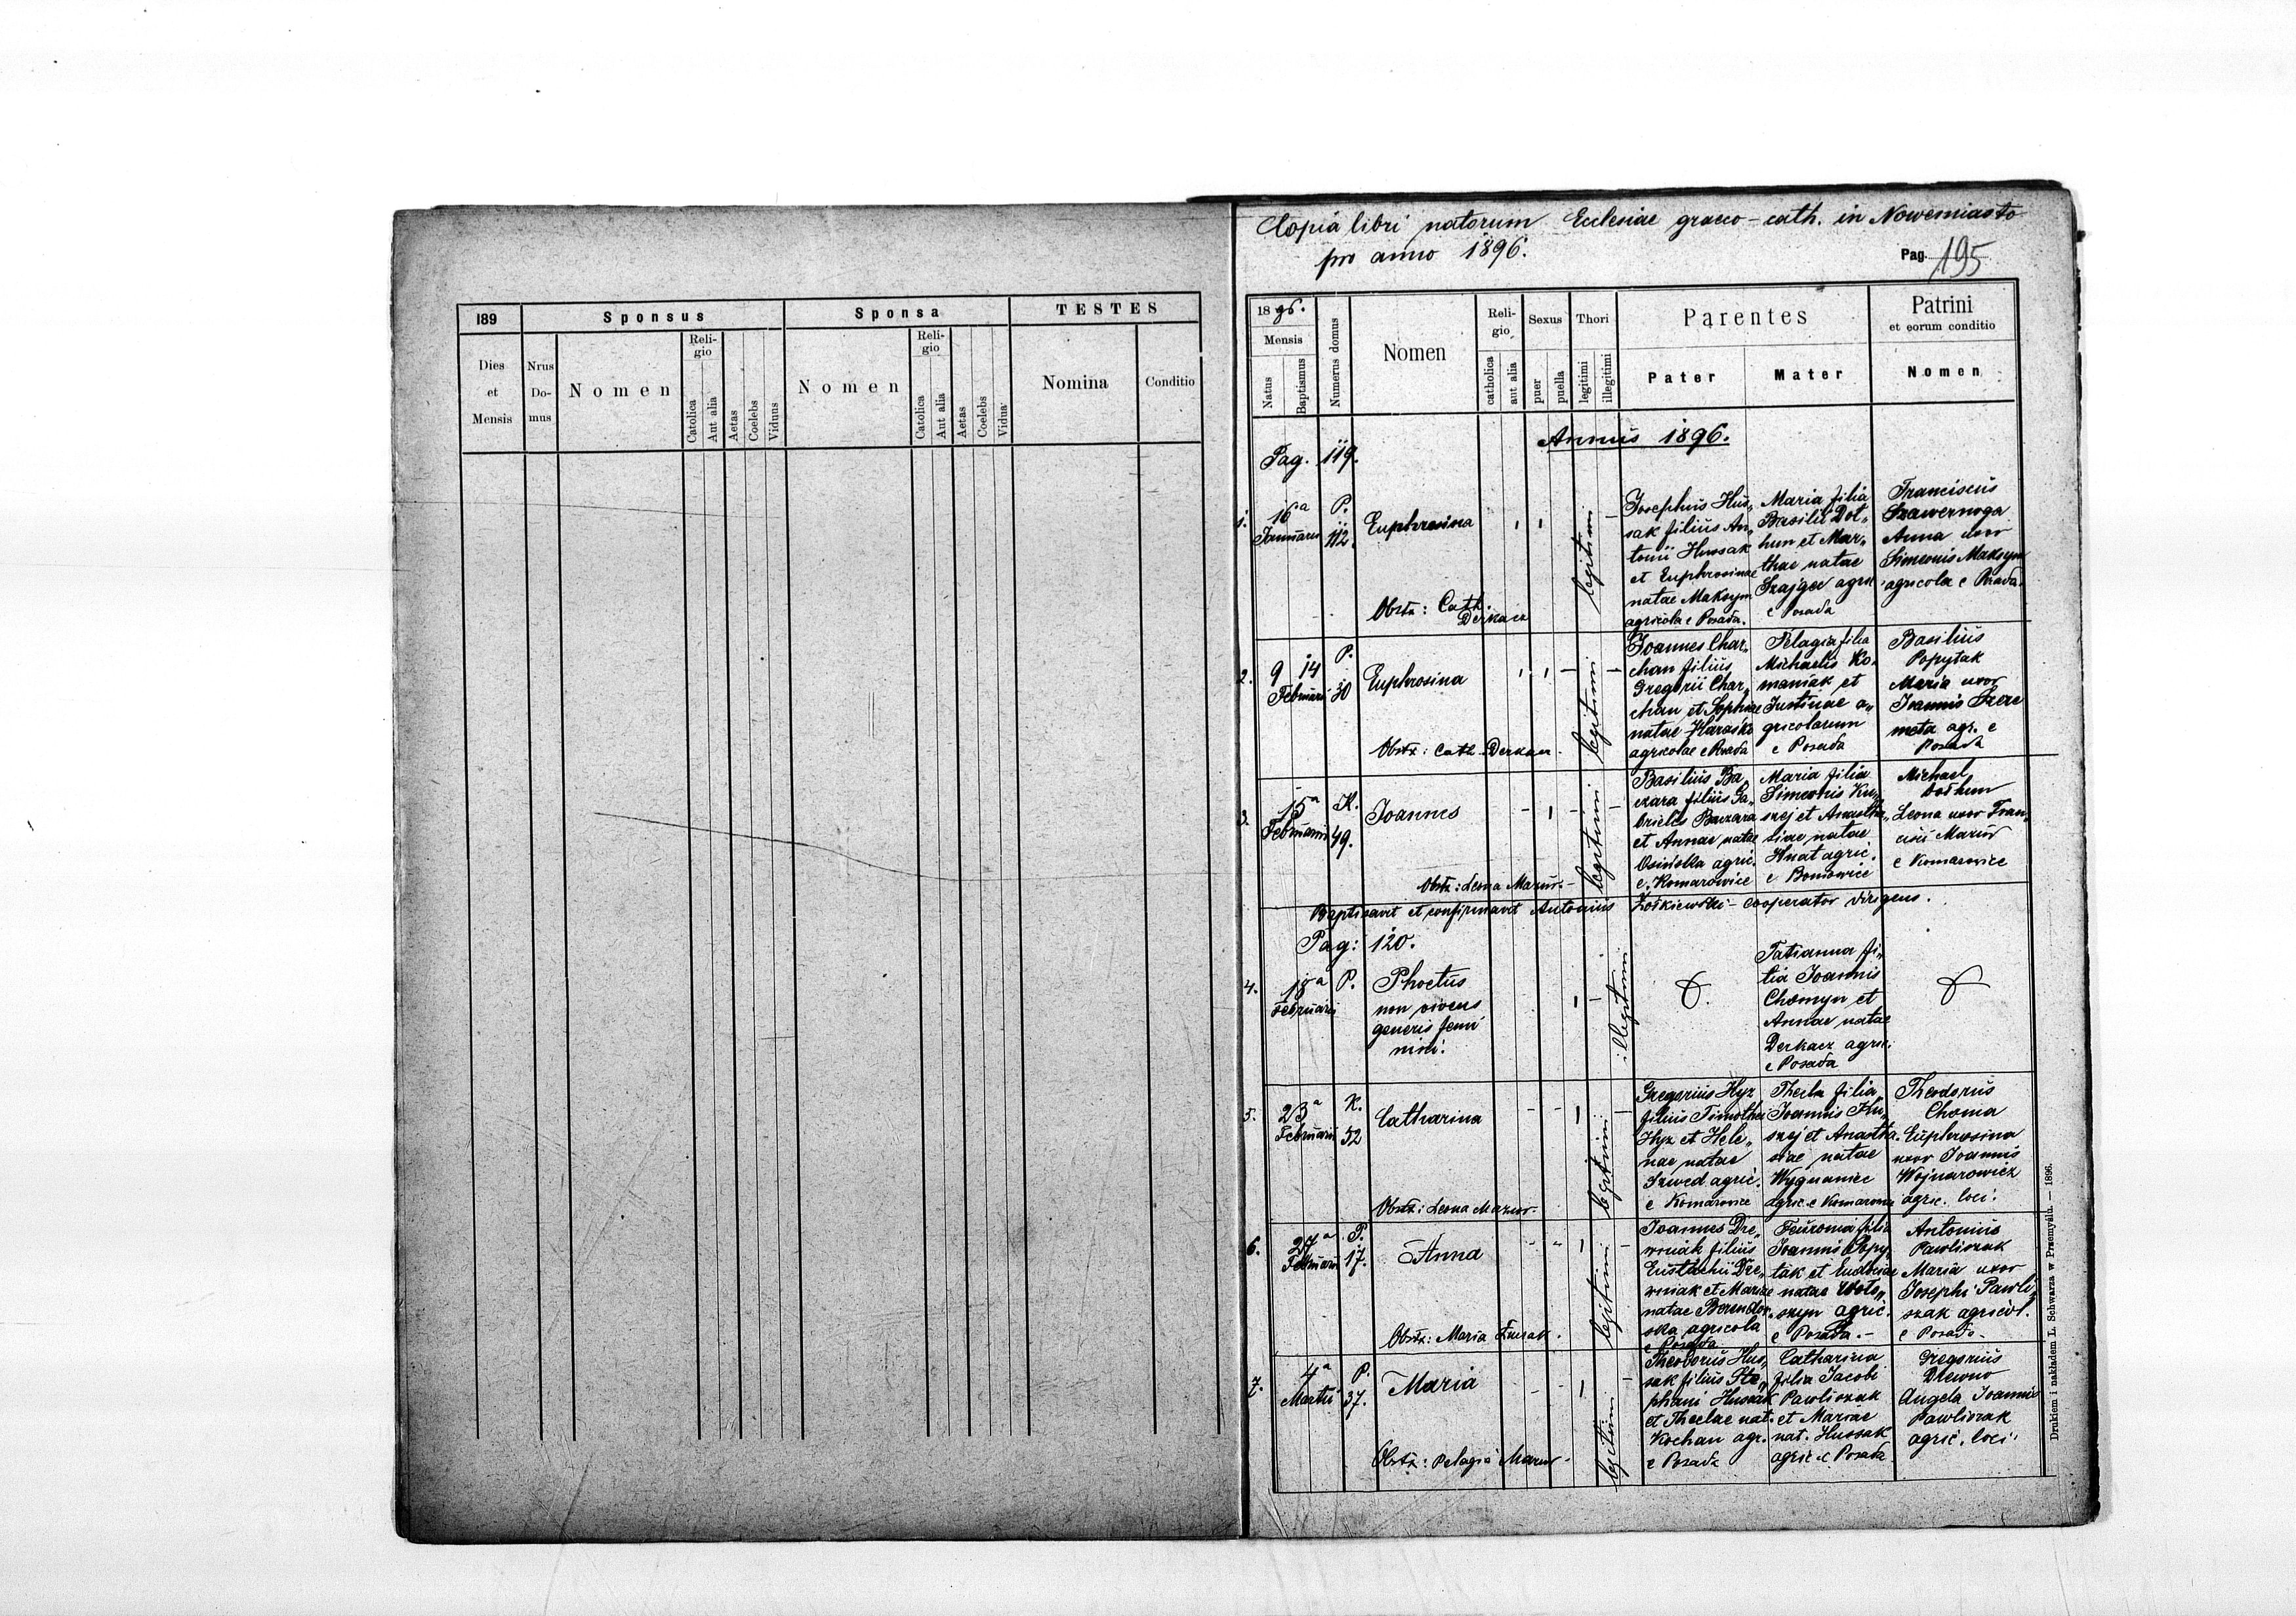 189
Sponsus
Sponsa
TESTES
Dies
et
Mensis
Nrus
Do-
mus
Nomen
Reli-
gio
Catolica
Aut alia
Aetas
Coelebs
Viduus
Nomen
Reli-
gio
Catolica
Aut alia
Aetas
Coelebs
Vidua
Nomina
Conditio
Copia libri natorum Ecclesiae graeco-cath. in Nowemiasto
pro anno 1896.
Pag. 195
1896.
Mensis
Natus
Baptismus
Numerus domus
Nomen
Reli-
gio
catholica
aut alia
Sexus
puer
puella
Thori
legitimi
illegitimi
Parentes
Pater
Mater
Patrini
et eorum conditio
Nomen
Annus 1896.
Pag. 119.
1.
16a
Januarii
P.
112.
Euphrosina
Obstr: Cath.
Derkacz
legitimi
Josephus Hus„
sak filius An„
tonii Hussak
et Euphrosinae
natae Maksym
agricola e Posada.
Maria filia
Basilii Dot„
hun et Mar„
thae natae
Szajgec agric
e Posada
Franciscus
Szawernoga
Anna uxor
Simeonis Maksym
agricola e Posada.
2.
9 14
Februarii
P.
30
Euphrosina
Obstr: Cath. Derkacz.
legitimi
Joannes Char„
chan filius
Gregorii Char„
chan et Sophiae
natae
agricolae e Posada
Pelagia filia
Michaelis Ro„
maniak et
Justinae a„
gricolarum
e Posada
Basilius
Popytak
Maria uxor
Joannis Szere
meta agr. e
Posada
3.
15a
Februarii
K.
49.
Joannes
Obstr: Leona Mazur.-
legitimi
Basilius Ba„
czara filius Ga„
brielis Baczara
et Annae natae
Osińska agric.
e Komarowice
Maria filia
Simeonis Ku„
szej et Anasta„
siae natae
Hnat agric.
e Bonowice
Michael
Dothun
Leona uxor Fran„
cisci Mazur
e Komarowice
Baptisavit et confirmavit Antonius Żółkiewski - cooperator dirigens.
Pag: 120.
4.
18a
Februarii
P.
Phoetus
non vivens
generis femi
nini.
illegitimi
Tatianna fi„
lia Joannis
Chomyn et
Annae natae
Derkacz agric.
e Posada
5.
23a
Februarii
K.
52
Catharina
Obstr: Leona Mazur.
legitimi
Gregorius Hyz
filius Timothei
Hyz et Hele„
nae natae
Szwed agric.
e Komarowice
Thecla filia
Joannis Ku„
szej et Anasta„
siae natae
Wygnaniec
agric. e Komarowice
Theodorus
Choma
Euphrosina
uxor Joannis
Wojnarowicz
agric. loci.
6.
27a
Februarii
P.
17.
Anna
Obstr: Maria Hussak.
legitimi
Joannes Dre„
wniak filius
Eustachii Dre„
wniak et Mariae
natae
ska agricola
e Posada
Feuronia filia
Joannis Popy„
tak et Eudociae
natae Woło„
szyn agric.
e Posada.-
Antonius
Pawliszak
Maria uxor
Josephi Pawli„
szak agricol.
e Posada-
7.
4a
Martii
P.
37.
Maria
Obstr: Pelagia Mazur-
legitimi
Theodorus Hus„
sak filius Ste„
phani Hussak
et Theclae nat.
Kochan agr.
e Posada
Catharina
filia Jacobi
Pawliszak
et Mariae
nat. Hussak
agric. e Posada.
Gregorius
Drewno
Angela Joannis
Pawliszak
agric. loci.
Drukiem i nakładem L. Schwarza w Przemyślu. — 1896.